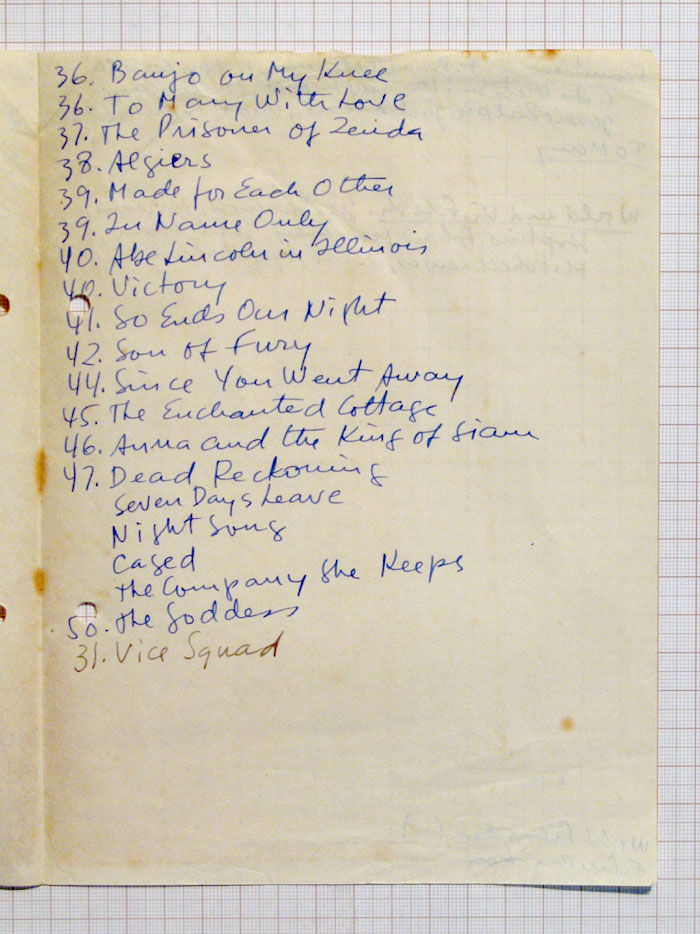 36. Banjo on My Knee
36. To Mary With Love
37. The Prisoner of Zenda
38. Algiers
39. Made for Each Other
39. In Name Only
40. Abe Lincoln in Illinois
40. Victory
41. So Ends Our Night
42. Son of Fury
44. Since You Went Away
45. The Enchanted Cottage
46. Anna and the King of Siam
47. Dead Reckoning
Seven Days Leave
Night Song
Caged
the Company She Keeps
50. the Goddess
31. Vice Squad